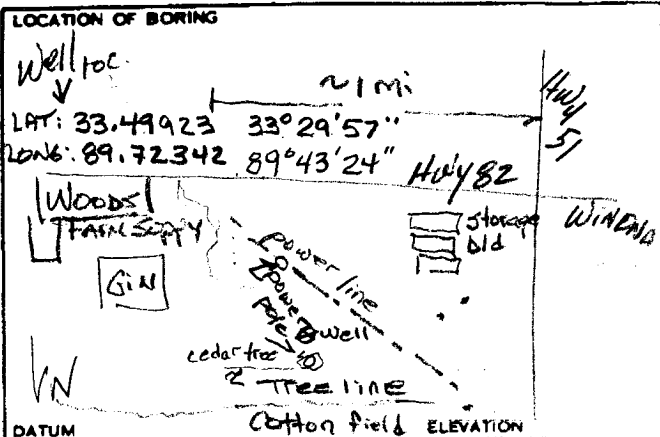 LOCATION OF BORING
Well loc.
~1 mi
Hwy 51
LAT: 33.49923 33°29'57"
LONG: 89.72342 89°43'24"
Hwy 82
WOODS
FARM SUPPLY
Storage
Bld
WINONA
GIN
power line
power
pole
well
cedar tree
Tree line
N
Cotton field
DATUM
ELEVATION